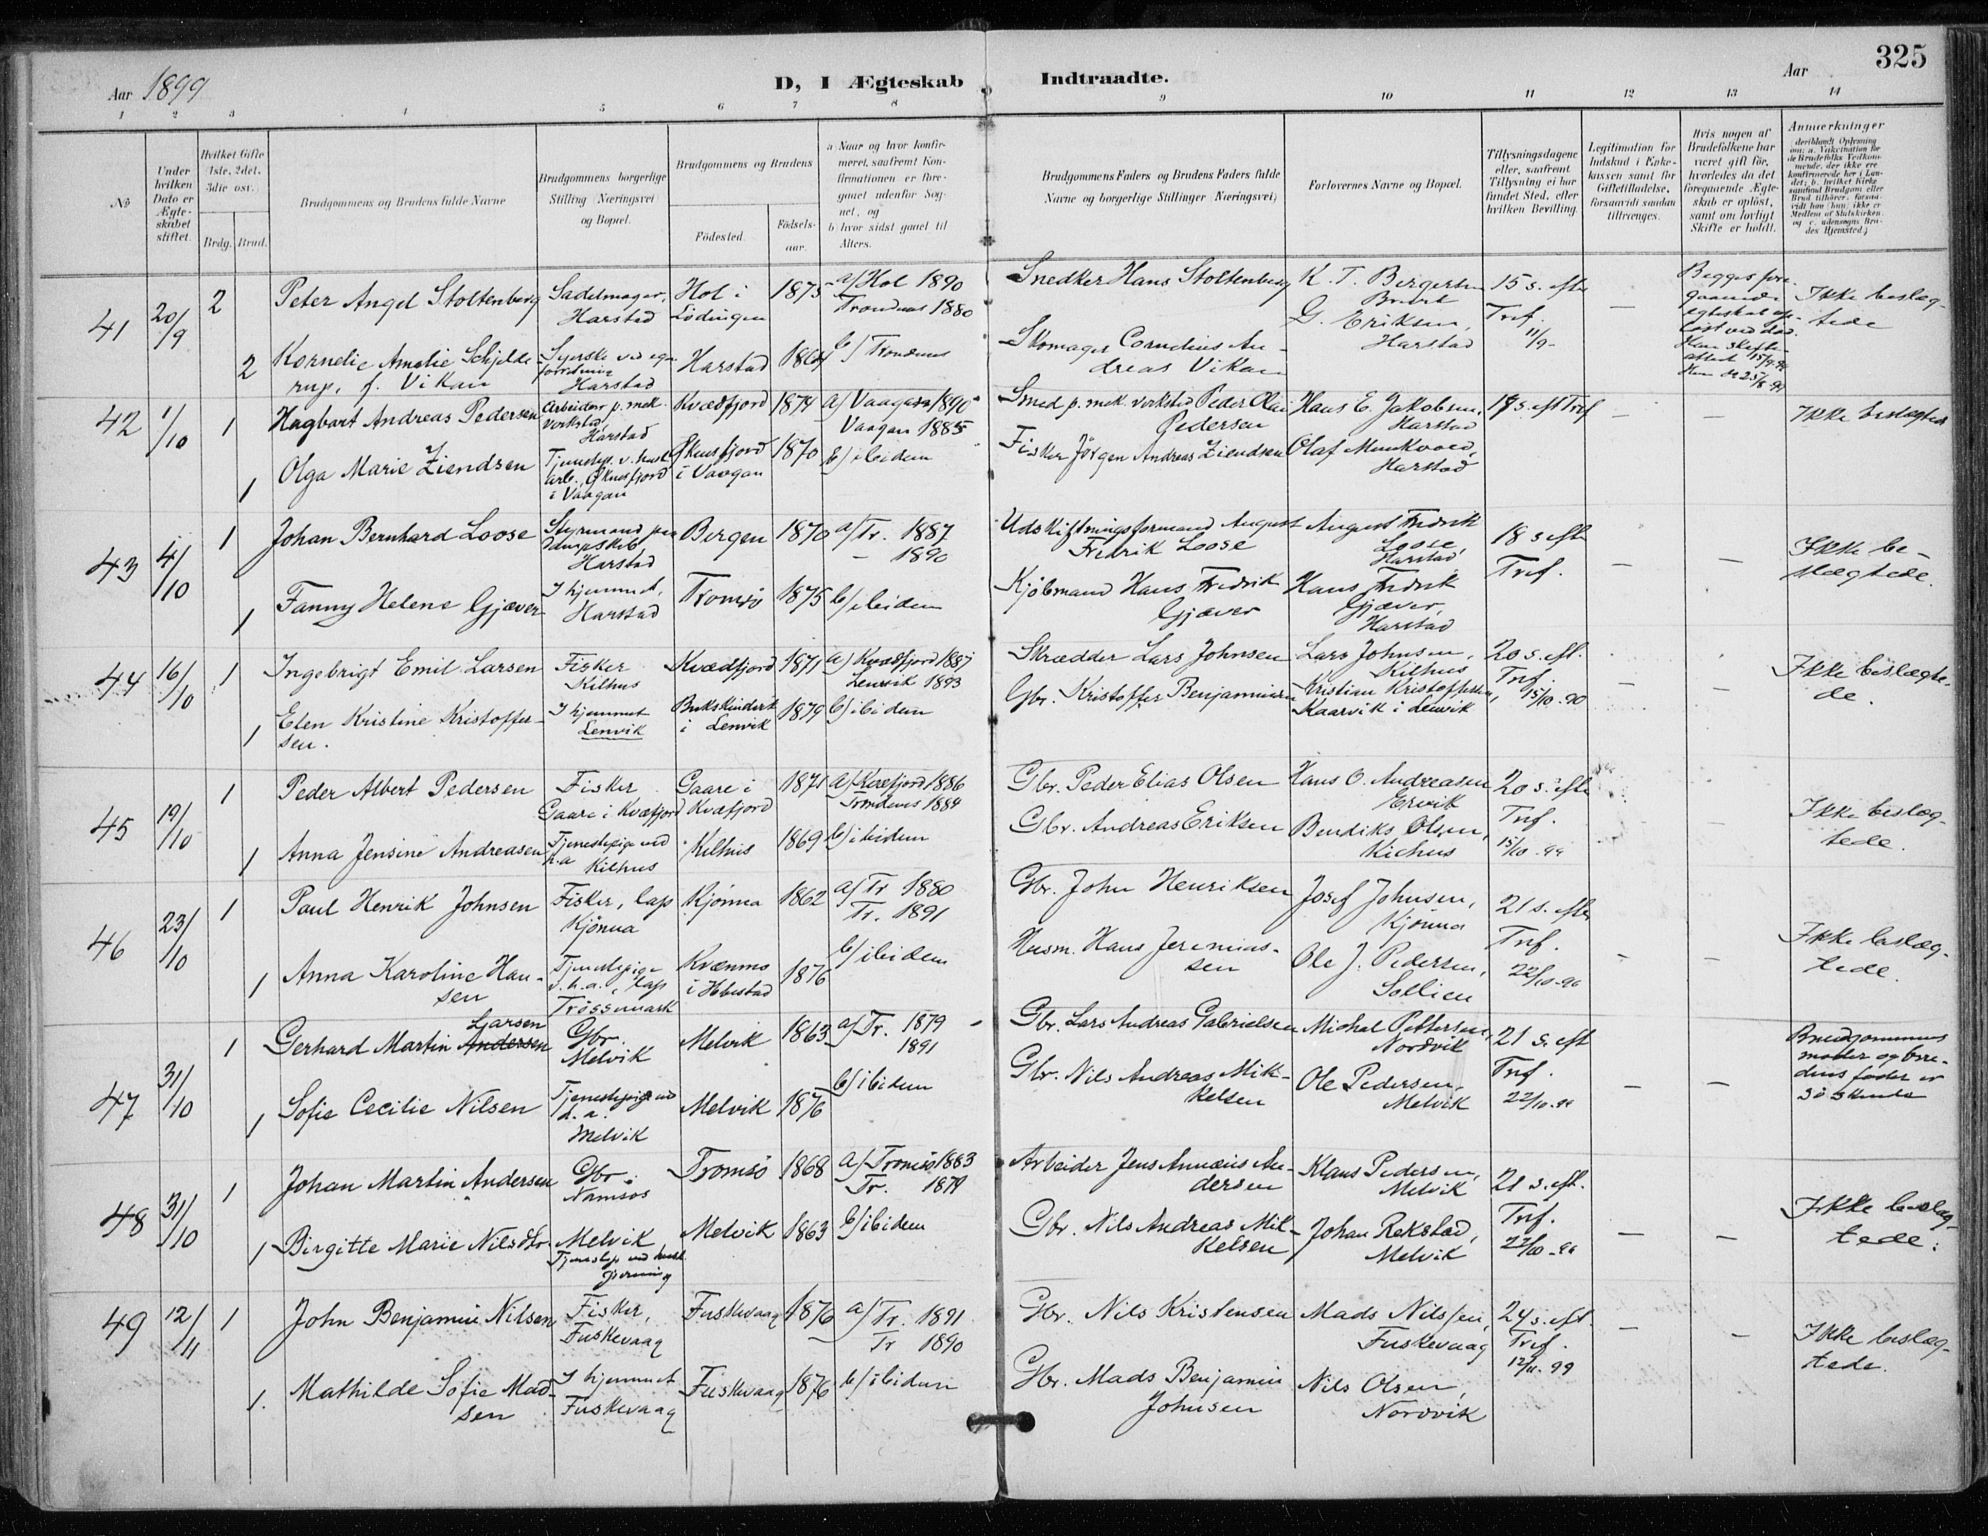 325
Aar 1899
D, I Ægteskab Indtraadte.
Aar
1 2 3 4 5 6 7 8 9 10 11 12 13 14
No
Under hvilken Dato er Ægteskabet stiftet.
Hvilket Gifte 1ste, 2det, 3die osv.
Brdg. Brud.
Brudgommens og Brudens fulde Navne
Brudgommens borgerlige Stilling (Næringsvei) og Bopæl.
Brudgommens og Brudens
Fødested. Fødselsaar.
a Naar og hvor konfirmeret, saafremt Konfirmationen er foregaaet udenfor Sognet, og
b hvor sidst gaaet til Alters.
Brudgommens Faders og Brudens Faders fulde Navne og borgerlige Stillinger (Næringsvei)
Forlovernes Navne og Bopæl.
Tillysningsdagene eller, saafremt Tillysning ei har fundet Sted, efter hvilken Bevilling.
Legitimation for Indskud i Enkekassen samt for Giftetilladelse, forsaavidt saadan tiltrænges.
Hvis nogen af Brudefolkene har været gift før, hvorledes da det foregaaende Ægteskab er opløst, samt om lovligt Skifte er holdt.
Anmærkninger
41 20/9 2 Peter Angel Stoltenberg Sadelmager, Harstad Hol i Lødingen 1875 a/ Hol 1890 Trondenes 1880 Snedker Hans Stoltenberg K. T. Bergersen G. Eriksen, Harstad 15 s. efter Tref. 11/9 – Ikke beslægtede
2 Kornelie Amalie Schjelderup, f. Vikan Syerske ved egen Harstad Harstad 1864 b/ Trondenes Skomager Cornelius Andreas Vikan
42 1/10 1 Hagbart Andreas Pedersen Arbeider p. mek. verksted, Harstad Kvædfjord 1874 a/ Vaagan 1890 Vaagan 1885 Smed p. mek. verksted Peder Olai Pedersen Hans E. Jakobsen, Harstad 17 s. eft Tref – – Ikke beslægtede
1 Olga Marie Ziendsen Tjenestep. v. husl. arb., i Vaagan i Vaagan 1870 b/ ibidem Fisker Jörgen Andreas Ziendsen Olaf Munkvold, Harstad
43 4/10 1 Johan Bernhard Loose Styrmand paa Dampskib, Harstad Bergen 1870 a/ Tr. 1887 – 1890 Udskiftningsformand August Fredrik Loose August Fredrik Loose, Harstad 18 s efter Tref. – – Ikke beslægtede.
1 Fanny Helene Gjæver I hjemmet, Harstad Tromsø 1875 b/ ibidem Kjøbmand Hans Fredrik Gjæver Hans Fredrik Gjæver, Harstad
44 16/10 1 Ingebrigt Emil Larsen Fisker Kilhus Kvædfjord 1871 a/ Kvædfjord 1887 Lenvik 1893 Skrædder Lars Johnsen Lars Johnsen, Kilhus 20 s. eft. Tref. 15/10-90 – – Ikke beslægtede.
1 Elen Kristine Kristoffersen. I hjemmet Lenvik i Lenvik 1879 b/ ibidem Gbr. Kristoffer Benjaminsen Kristian Kristoffersen, Kaarvik i Lenvik
45 19/10 1 Peder Albert Pedersen Fisker Gaare i Kvæfjord Gaare i Kvæfjord 1871 a/ Kvæfjord 1886 Trondenes 1884 Gbr. Peder Elias Olsen Hans O. Andreasen Ervik 20 s. efter Tref. 15/10-99 Ikke beslægtede.
1 Anna Jensine Andreasen Tjenestepige ved h.a Kilhus Kilhus 1869 b/ ibidem Gbr. Andreas Eriksen Bendiks Olsen, Kichus
46 23/10 1 Paul Henrik Johnsen Fisker, lap Kjønna Kjönna 1862 a/ Tr 1880 Tr. 1891 Gbr. John Henriksen Josef Johnsen, Kjönna 21 s. efter Tref. 22/10-99 – – Ikke beslægtede.
1 Anna Karoline Hansen Tjenestepige v. h. a., lap Trøssemark Kvænmo 1876 b/ ibidem Husm. Hans Jeremiassen Ole J. Pedersen, Sollien
47 31/10 1 Gerhard Martin Andersen Larsen Gbr. Melvik Melvik 1863 a/ Tr. 1879 1891 Gbr. Lars Andreas Gabrielsen Mickal Pettersen, Nordvik 21 s. eft Tref. 22/10-99 – – Brudgommens moder og brudens fader er söskende
1 Sofie Cecilie Nilsen Tjenestepige ved h. a. Melvik Melvik 1876 b/ ibidem Gbr. Nils Andreas Mikkelsen Ole Pedersen, Melvik
48 31/10 1 Johan Martin Andersen Gbr. Namsos Tromsö 1868 a/ Tromsö 1883 Tr. 1879 Arbeider Jens Annæus Andersen Klaus Pedersen, Melvik 21 s. eft. Tref. 22/10-99 – – Ikke beslægtede.
1 Birgitte Marie Nilsdtr. Melvik Melvik 1863 b/ ibidem Gbr. Nils Andreas Mikkelsen Johan Rekstad, Melvik
49 12/11 1 John Benjamin Nilsen Fisker, Fuskevaag Fuskevaag 1876 a/ Tr. 1891 Tr 1890 Gbr. Nils Kristensen Mads Nilssen, Fuskevaag 24 s. eft. Tref. 12/11-99 – – Ikke beslægtede.
1. Mathilde Sofie Madsen I hjemmet Fuskevaag Fuskevaag 1876 b/ ibidem Gbr. Mads Benjamin Johnsen Nils Olsen, Nordvik